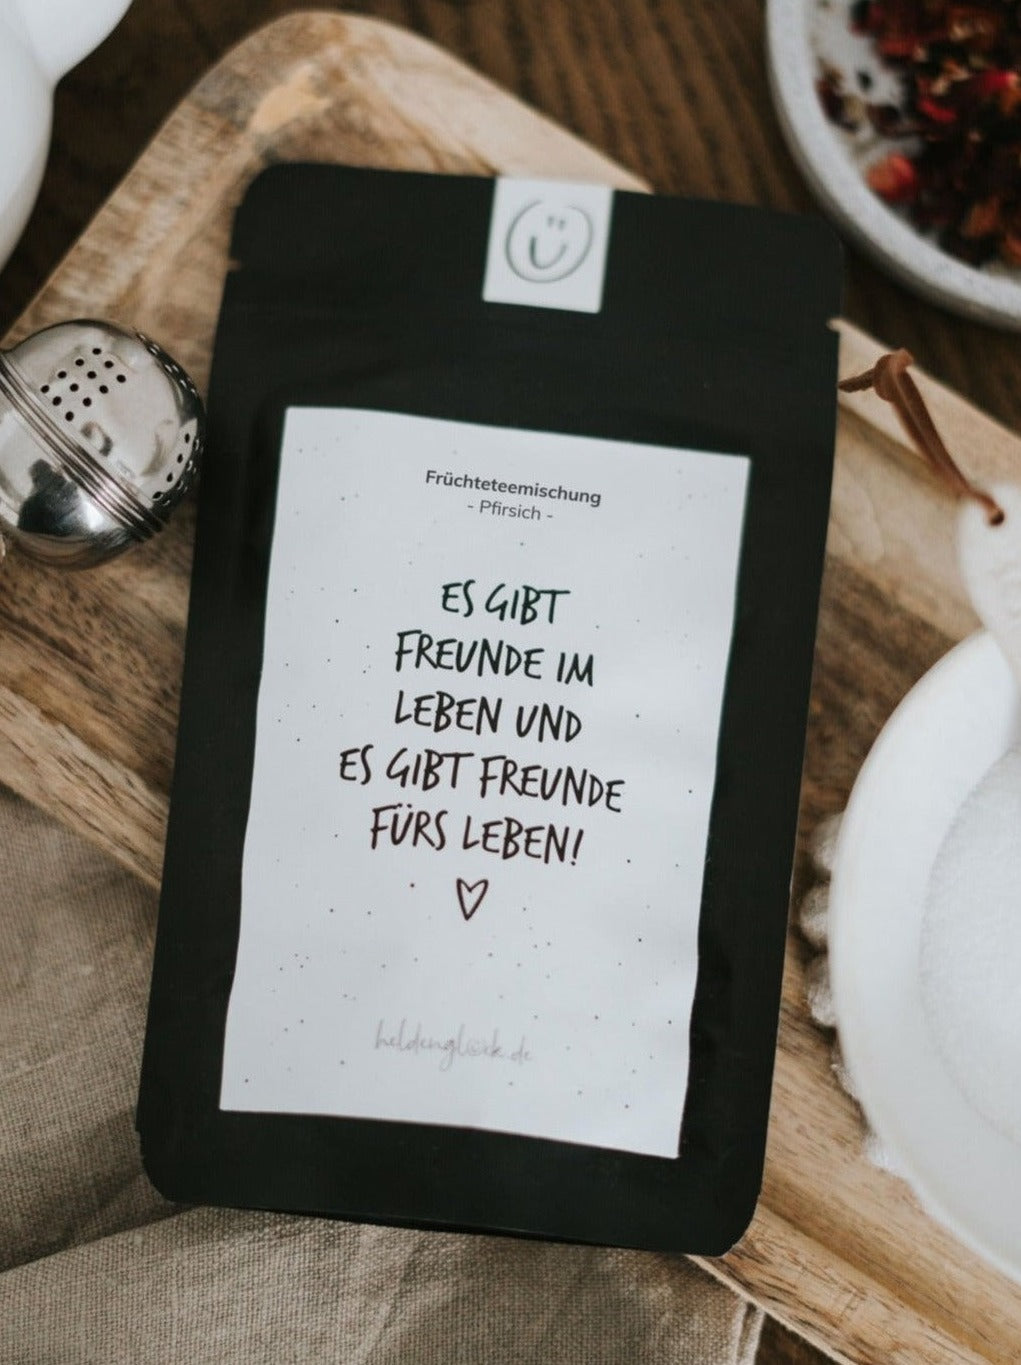 Früchteteemischung
- Pfirsich -
ES GIBT
FREUNDE IM
LEBEN UND
ES GIBT FREUNDE
FÜRS LEBEN!
heldenglück.de